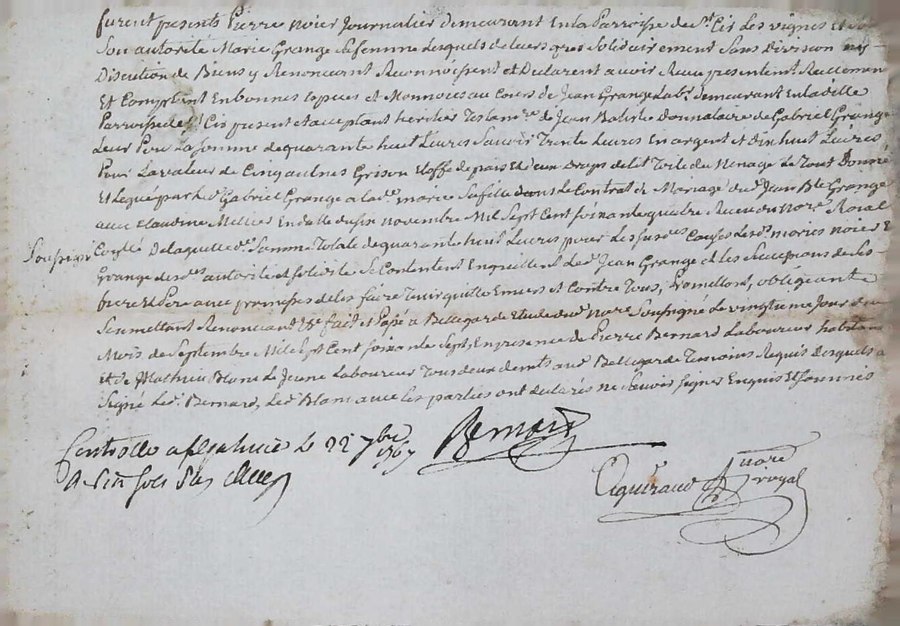 furent presents Pierre noier Journalier demeurant En la Parroisse de St Cir Les vignes Et de
Son autorité Marie Grange Sa femme Lesquels de leurs gres Solidairement Sans Division ny
Discution de Biens y Renoncant Reconnoissent et Declarent avoir Recu presentement Reellement
Et Comptant En bonnes Especes et Monnoies au Cours de Jean Grange Labr demeurant En la ditte
Parroisse de St Cir present et acceptant heritier Testamre de Jean Batiste donnataire de Gabriel Grange
Leur Pere La Somme de quarante huit Livres Savoir Trente Livres En argent et Dix huit Livres
Pour La valeur de Cinq aulnes Grison Etoffe de pais Et deux Draps de lit Toile du Menage Le Tout Donné
Et Legué par led Gabriel Grange a lade marie Sa fille dans Le Contrat de Mariage dud Jean Bte Grange
avec Claudine En datte du six novembre Mil Sept Cent soixante quatre Recu du Nore Roial
Soussigné Corolé De laquelle de Somme Totale de quarante huit Livres pour Les susdes Causes Lesd maries noier Et
Grange desdes autorité et solidité Se Contentent En quittent Led Jean Grange et les Successions de Ses
frere Et Pere avec promesses de les faire Tenir quittes Envers et Contre Tous, Promettant, obligeant
Soumettant Renoncant Etc fait et Passé a Bellegarde Etude dud Nore Soussigné Le vingtieme Jour du
Mois de Septembre Mil Sept Cent soixante Sept, En presence de Pierre Bernard Laboureur habitant
Et de Mathieu Blanc Le Jeune Laboureur Tous deux demts aud Bellegarde Temoins Requis Desquels a
Signé Led. Bernard, Led Blanc avec les parties ont declarés ne Savoir signer Enquis Et Sommés
Controllé a le 22 7bre
1767 Bernard
nore
royal